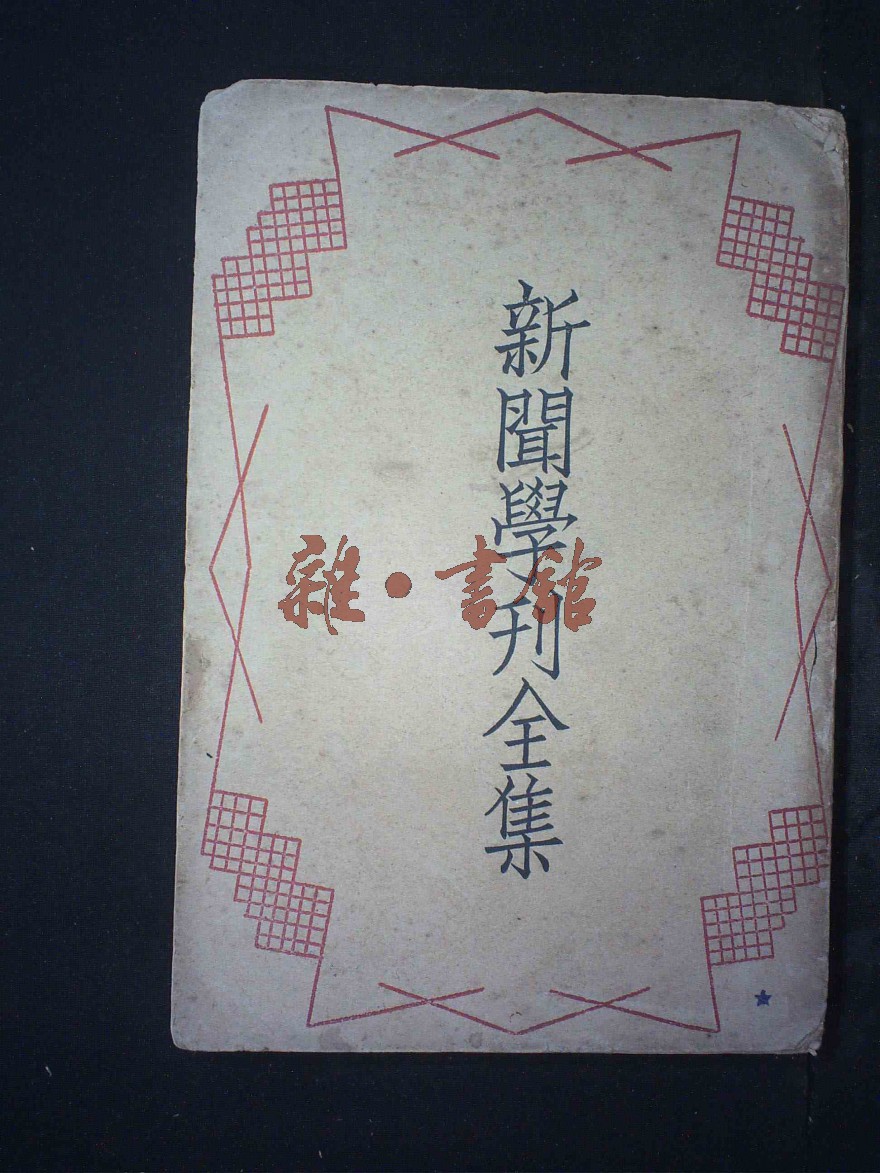 新聞學刊全集
雜·書館